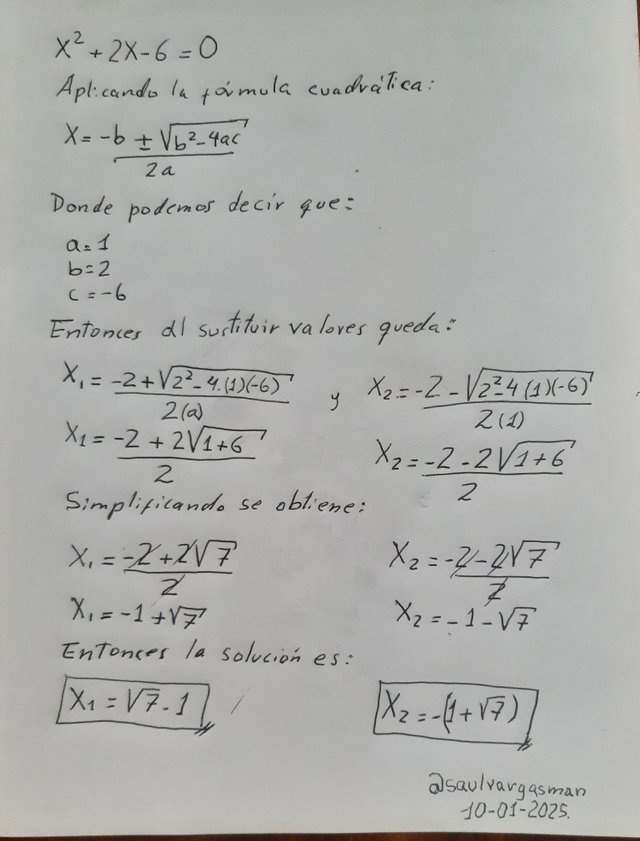 x² + 2x - 6 = 0
Aplicando la fórmula cuadrática:
x = -b ± √b² - 4ac
2a
Donde podemos decir que:
a = 1
b = 2
c = -6
Entonces al sustituir valores queda:
X₁ = -2 + √2² - 4.(1)(-6) y X₂ = -2 - √2² - 4(1)(-6)
2(a) 2(1)
X₁ = -2 + 2√1+6 X₂ = -2 - 2√1+6
2 2
Simplificando se obtiene:
X₁ = -2 + 2√7 X₂ = -2 - 2√7
2 2
X₁ = -1 + √7 X₂ = -1 - √7
Entonces la solución es:
X₁ = √7 - 1 X₂ = -(1 + √7)
@saulvargasman
10-01-2025.